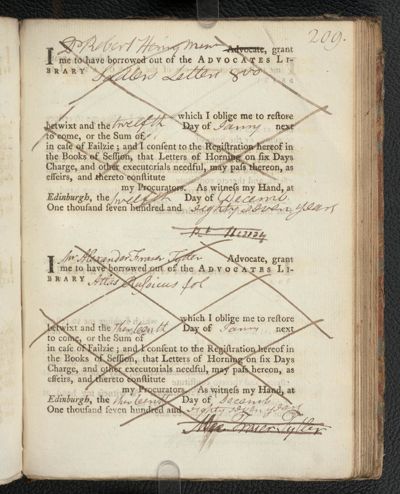 209.
I Dr Robert Advocate, grant
me to have borrowed out of the ADVOCATES LI-
BRARY Letters 8vo
which I oblige me to restore
betwixt and the twelfth Day of Janry next
to come, or the Sum of
in case of Failzie; and I consent to the Registration hereof in
the Books of Session, that Letters of Horning on six Days
Charge, and other executorials needful, may pass thereon, as
effeirs, and thereto constitute
my Procurators. As witness my Hand, at
Edinburgh, the twelfth Day of Decemr
One thousand seven hundred and eighty seven years
I Mr Alexander Fraser Tytler Advocate, grant
me to have borrowed out of the ADVOCATES LI-
BRARY Atlas fol
which I oblige me to restore
betwixt and the thirteenth Day of Janry next
to come, or the Sum of
in case of Failzie; and I consent to the Registration hereof in
the Books of Session, that Letters of Horning on six Days
Charge, and other executorials needful, may pass thereon, as
effeirs, and thereto constitute
my Procurators. As witness my Hand, at
Edinburgh, the thirteenth Day of Decemr
One thousand seven hundred and eighty seven years
Alexr Fraser Tytler